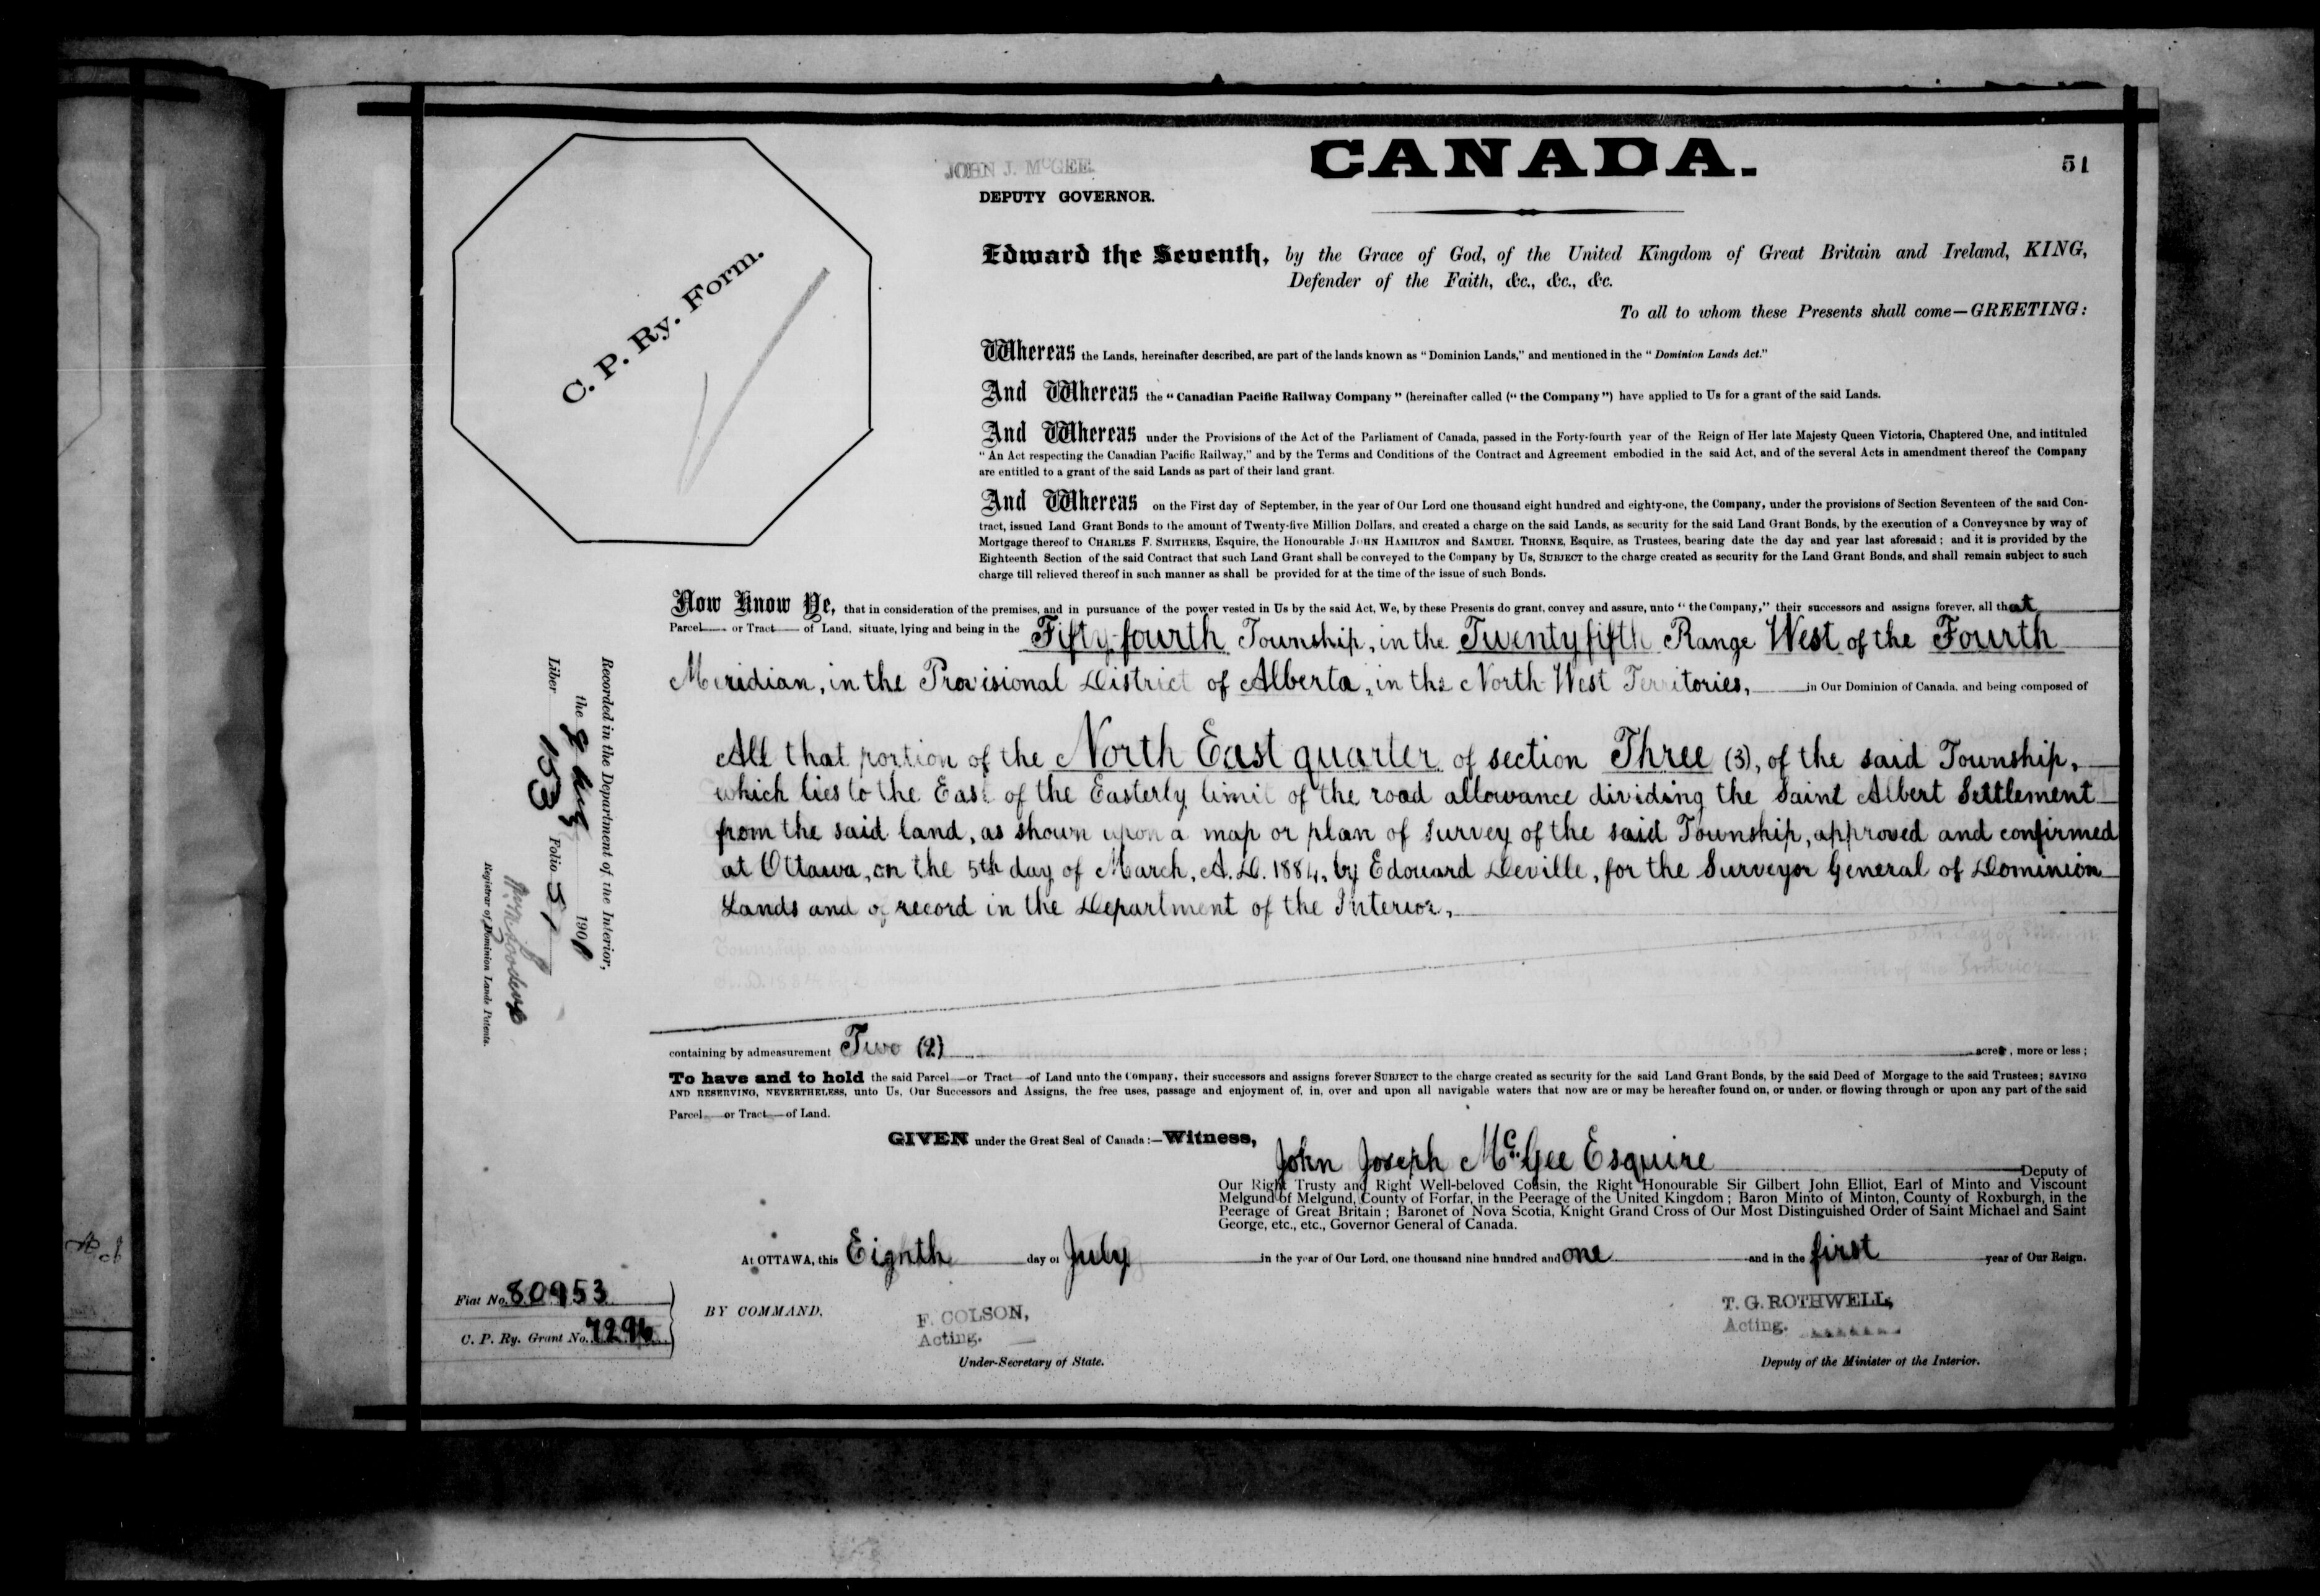 JOHN J. McGEE.
DEPUTY GOVERNOR.
CANADA.
51
C. P. Ry. Form.
Edward the Seventh, by the Grace of God, of the United Kingdom of Great Britain and Ireland, KING,
Defender of the Faith, &c., &c., &c.
To all to whom these Presents shall come—GREETING:
Whereas the Lands, hereinafter described, are part of the lands known as "Dominion Lands," and mentioned in the "Dominion Lands Act."
And Whereas the "Canadian Pacific Railway Company" (hereinafter called ("the Company") have applied to Us for a grant of the said Lands.
And Whereas under the Provisions of the Act of the Parliament of Canada, passed in the Forty-fourth year of the Reign of Her late Majesty Queen Victoria, Chaptered One, and intituled
"An Act respecting the Canadian Pacific Railway," and by the Terms and Conditions of the Contract and Agreement embodied in the said Act, and of the several Acts in amendment thereof the Company
are entitled to a grant of the said Lands as part of their land grant.
And Whereas on the First day of September, in the year of Our Lord one thousand eight hundred and eighty-one, the Company, under the provisions of Section Seventeen of the said Con-
tract, issued Land Grant Bonds to the amount of Twenty-five Million Dollars, and created a charge on the said Lands, as security for the said Land Grant Bonds, by the execution of a Conveyance by way of
Mortgage thereof to CHARLES F. SMITHERS, Esquire, the Honourable JOHN HAMILTON and SAMUEL THORNE, Esquire, as Trustees, bearing date the day and year last aforesaid; and it is provided by the
Eighteenth Section of the said Contract that such Land Grant shall be conveyed to the Company by Us, SUBJECT to the charge created as security for the Land Grant Bonds, and shall remain subject to such
charge till relieved thereof in such manner as shall be provided for at the time of the issue of such Bonds.
Now Know Ye, that in consideration of the premises, and in pursuance of the power vested in Us by the said Act, We, by these Presents do grant, convey and assure, unto "the Company," their successors and assigns forever, all that
Parcel or Tract of Land, situate, lying and being in the Fifty-fourth Township, in the Twenty fifth Range West of the Fourth
Meridian, in the Provisional District of Alberta, in the North West Territories, in Our Dominion of Canada, and being composed of
All that portion of the North East quarter of section Three (3), of the said Township,
which lies to the East of the Easterly limit of the road allowance dividing the Saint Albert Settlement
from the said land, as shown upon a map or plan of survey of the said Township, approved and confirmed
at Ottawa, on the 5th day of March, A.D. 1884, by Edouard Deville, for the Surveyor General of Dominion
Lands and of record in the Department of the Interior.
containing by admeasurement Two (2) acres, more or less;
To have and to hold the said Parcel or Tract of Land unto the Company, their successors and assigns forever SUBJECT to the charge created as security for the said Land Grant Bonds, by the said Deed of Morgage to the said Trustees; SAVING
AND RESERVING, NEVERTHELESS, unto Us, Our Successors and Assigns, the free uses, passage and enjoyment of, in, over and upon all navigable waters that now are or may be hereafter found on, or under, or flowing through or upon any part of the said
Parcel or Tract of Land.
GIVEN under the Great Seal of Canada:—Witness,
John Joseph McGee Esquire Deputy of
Our Right Trusty and Right Well-beloved Cousin, the Right Honourable Sir Gilbert John Elliot, Earl of Minto and Viscount
Melgund of Melgund, County of Forfar, in the Peerage of the United Kingdom; Baron Minto of Minton, County of Roxburgh, in the
Peerage of Great Britain; Baronet of Nova Scotia, Knight Grand Cross of Our Most Distinguished Order of Saint Michael and Saint
George, etc., etc., Governor General of Canada.
At OTTAWA, this Eighth day of July in the year of Our Lord, one thousand nine hundred and one and in the first year of Our Reign.
BY COMMAND,
F. COLSON,
Acting.
Under-Secretary of State.
T. G. ROTHWELL,
Acting.
Deputy of the Minister of the Interior.
Fiat No. 80953
C. P. Ry. Grant No. 7296
Recorded in the Department of the Interior,
the 8 Aug 1901
Liber 153 Folio 51
Registrar of Dominion Lands Patents.